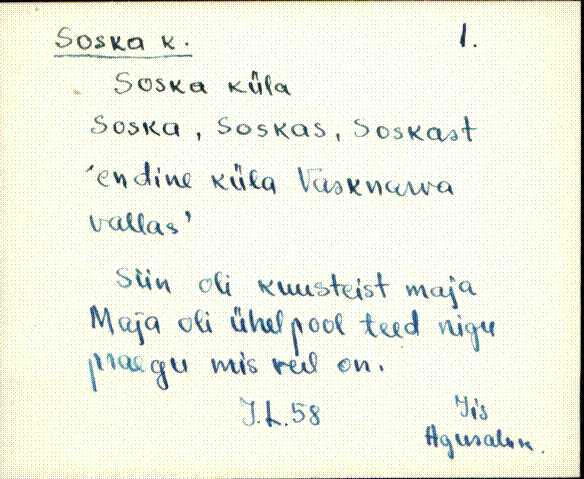 Soska k. 1.
Soska küla
Soska, Soskas, Soskast
'endine küla Vasknarva
vallas'
Siin oli kuusteist maja
Maja oli ühelpool teed nigu
praegu mis veil on.
J.L.58 Iis
Agusalu k.